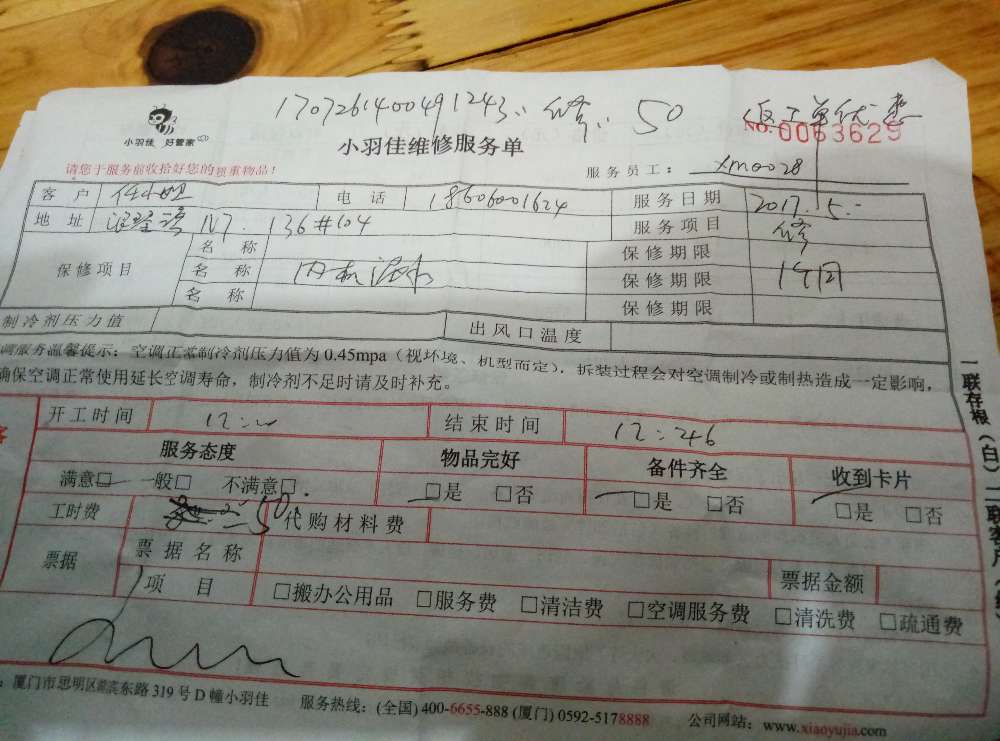 1707261400491243: 修: 50 返工单优惠
小羽佳 好管家
NO. 0063629
小羽佳维修服务单
请您于服务前收拾好您的贵重物品!
服务员工: xm0028
客户 电话 18606001624 服务日期 2017.5.
地址 N7. 136#104 服务项目 修
保修项目 名称 保修期限
名称 内机漏水 保修期限 1个月
名称 保修期限
制冷剂压力值 出风口温度
调服务温馨提示: 空调正常制冷剂压力值为 0.45mpa (视环境、机型而定), 拆装过程会对空调制冷或制热造成一定影响,
确保空调正常使用延长空调寿命, 制冷剂不足时请及时补充。
客
开工时间 12: 结束时间 12:46
服务态度 物品完好 备件齐全 收到卡片
满意□ 一般□ 不满意□ □是 □否 □是 □否 □是 □否
工时费 50 代购材料费
票据 票据名称 票据金额
项目 □搬办公用品 □服务费 □清洁费 □空调服务费 □清洗费 □疏通费
: 厦门市思明区湖滨东路 319 号 D 幢小羽佳 服务热线: (全国) 400-6655-888 (厦门) 0592-5178888 公司网站: www.xiaoyujia.com
一联存根(白)二联客户